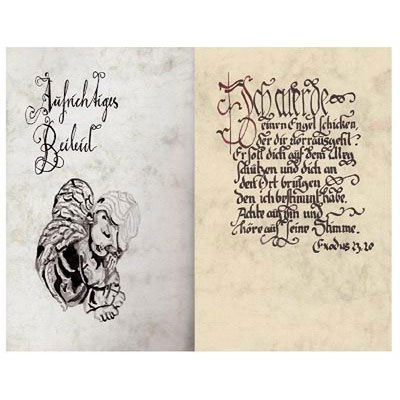 Aufrichtiges
Beileid
Ich werde
einen Engel schicken,
der dir vorrausgeht.
Er soll dich auf dem Weg
schützen und dich an
den Ort bringen
den ich bestimmt habe.
Achte auf ihn und
höre auf seine Stimme.
Exodus 23,20